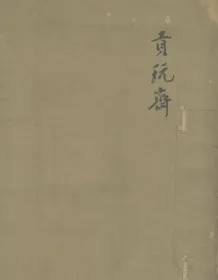 貢玩齋